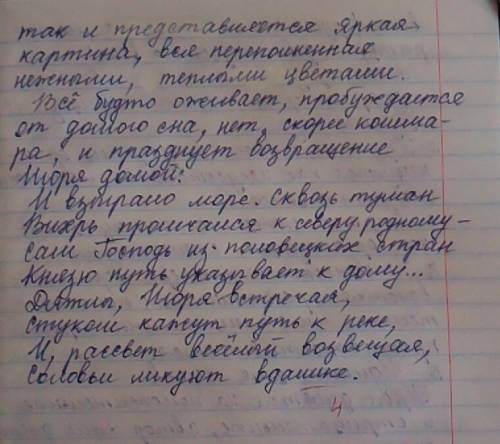 так и представляется яркая
картина, вся переполненная
нежными, тёплыми цветами.
Всё будто оживает, пробуждается
от долгого сна, нет, скорее кошма-
ра, и празднует возвращение
Игоря домой:
И взыграло море. Сквозь туман
Вихрь промчался к северу родному -
Сам Господь из половецких стран
Князю путь указывает к дому...
Дятлы, Игоря встречая,
Стуком кажут путь к реке,
И, рассвет весёлый возвещая,
Соловьи ликуют вдалике.
4